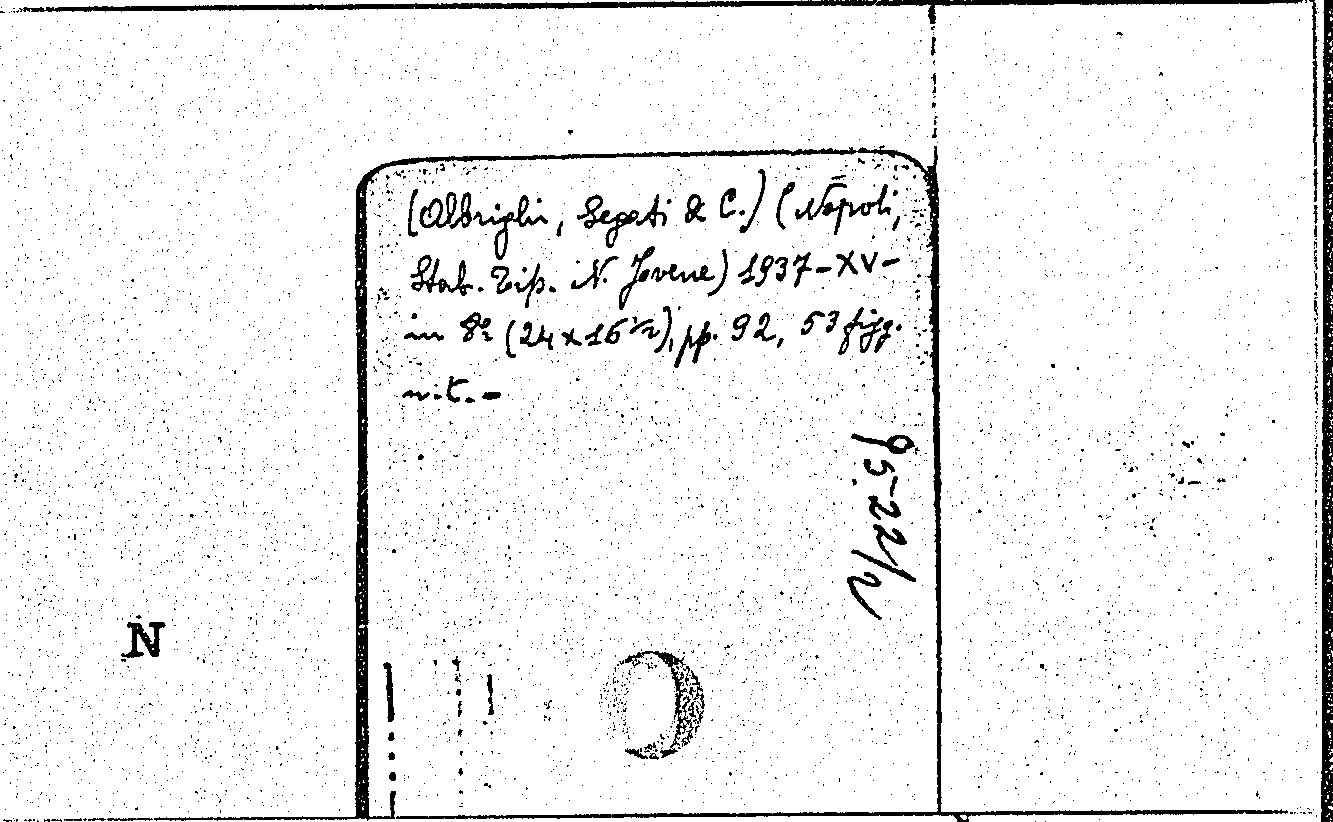 (Albrighi, Segati & C.) (Napoli,
Stab. Tip. N. Jovene) 1937-XV-
in 8º (24x16½), pp. 92, 53 figg.
n.t.-
95-22/2
N